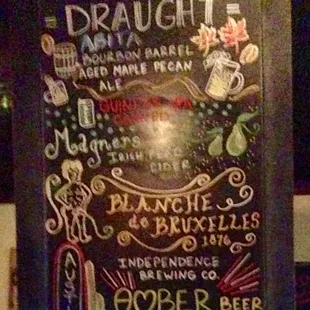 DRAUGHT
ABITA
BOURBON BARREL
AGED MAPLE PECAN
ALE
GUINNESS
Magners
IRISH PEAR
CIDER
BLANCHE
de BRUXELLES
1876
INDEPENDENCE
BREWING CO.
AUSTI
AMBER BEER